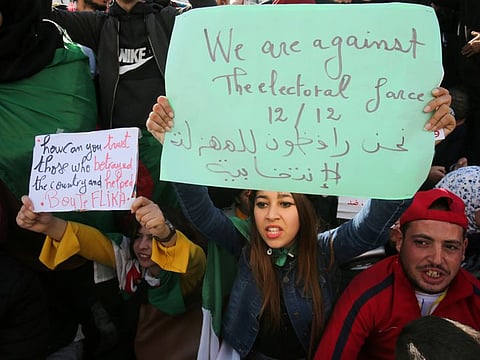 We are against
The electoral farce
12/12
نحن رافضون للمهزلة
الإنتخابية
how can you trust
those who betrayed
the country and helped
"Boute FLiKA"
NIKE